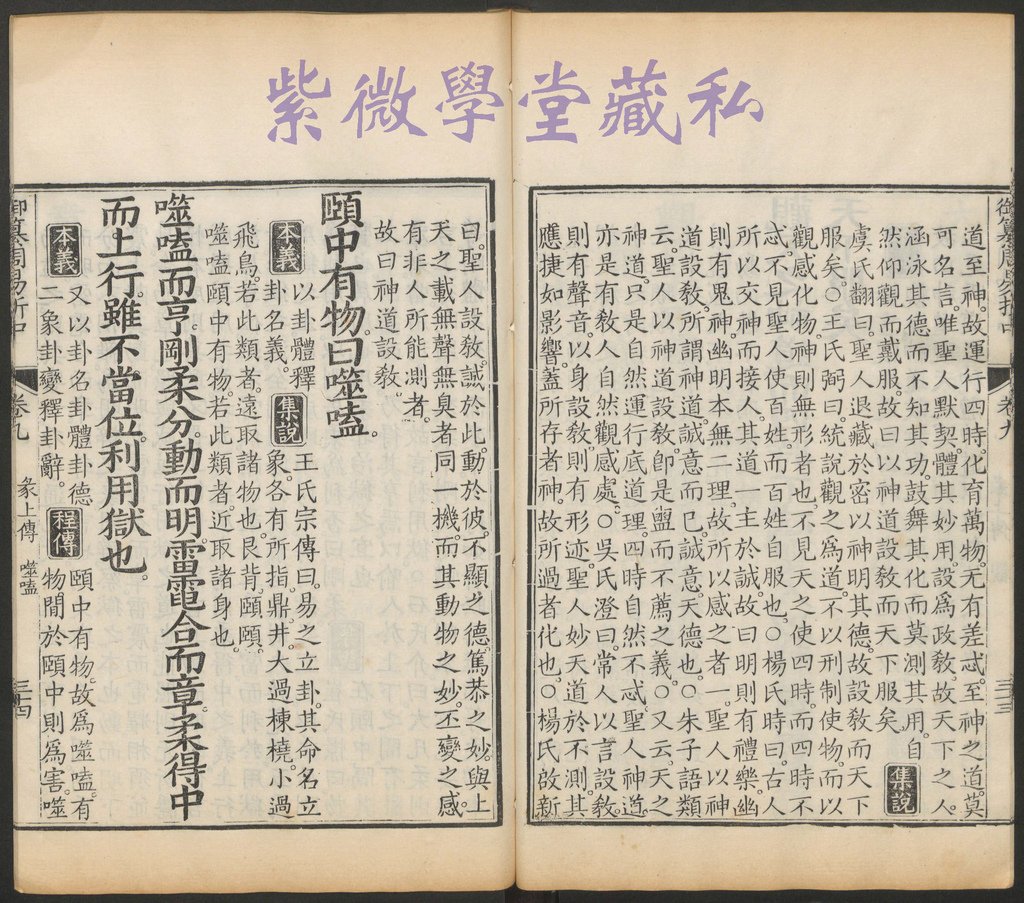 紫微學堂藏私
御纂周易折中 卷九 三三
道至神。故運行四時。化育萬物。无有差忒。至神之道。莫
可名言。唯聖人默契。體其妙用。設爲政敎。故天下之人。
涵泳其德而不知其功。鼓舞其化而莫測其用。自
然仰觀而戴服。故曰以神道設敎而天下服矣。集說
虞氏翻曰。聖人退藏於密。以神明其德。故設敎而天下
服矣。○王氏弼曰。統說觀之爲道。不以刑制使物。而以
觀感化物。神則無形者也。不見天之使四時。而四時不
忒。不見聖人使百姓。而百姓自服也。○楊氏時曰。古人
所以交神而接人。其道一主於誠。故曰明則有禮樂。幽
則有鬼神。幽明本無二理。故所以感之者一。聖人以神
道設敎。所謂神道。誠意而已。誠意。天德也。○朱子語類
云。聖人以神道設敎。卽是盥而不薦之義。○又云。天之
神道。只是自然運行底道理。四時自然不忒。聖人神道。
亦是有敎人自然觀感處。○吳氏澄曰。常人以言設敎。
則有聲音。以身設敎。則有形迹。聖人妙天道於不測。其
應捷如影響。蓋所存者神。故所過者化也。○楊氏啟新
曰。聖人設敎。誠於此。動於彼。不顯之德。篤恭之妙。與上
天之載無聲無臭者。同一機。而其動物之妙。丕變之感。
有非人所能測者。
故曰神道設敎。
頤中有物。曰噬嗑。
本義 以卦體釋
卦名義。
集說 王氏宗傳曰。易之立卦。其命名立
象。各有所指。鼎井。大過棟橈。小過
飛鳥。若此類者。遠取諸物也。艮背。頤頤。
噬嗑頤中有物。若此類者。近取諸身也。
噬嗑而亨。剛柔分。動而明。雷電合而章。柔得中
而上行。雖不當位。利用獄也。
本義 又以卦名卦體卦德
二象卦變。釋卦辭。
程傳 頤中有物。故爲噬嗑。有
物間於頤中則爲害。噬
御纂周易折中 卷九 彖上傳 噬嗑 三四